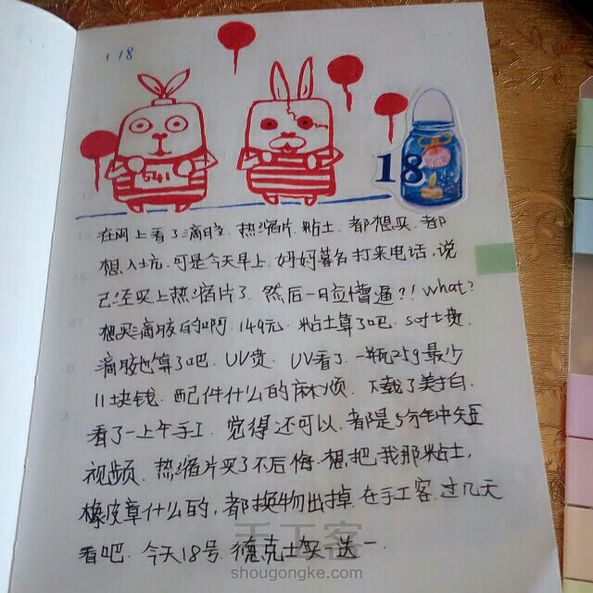 1/18
541
18
在网上看了滴胶.热缩片.黏土.都想买.都
想入坑.可是今天早上.妈妈莫名打来电话,说
已经买上热缩片了.然后一脸懵逼?!what?
想买滴胶的啊.149元.粘土算了吧.soft贵.
滴胶也算了吧.UV贵.UV看了.一瓶25g最少
11块钱.配件什么的麻烦.下载了美拍.
看了一上午手工.觉得还可以.都是5分钟短
视频.热缩片买了不后悔.想把我那粘土,
橡皮章什么的,都换物出掉.在手工客.过几天
看吧.今天18号.德克士买 送一.
手工客
shougongke.com